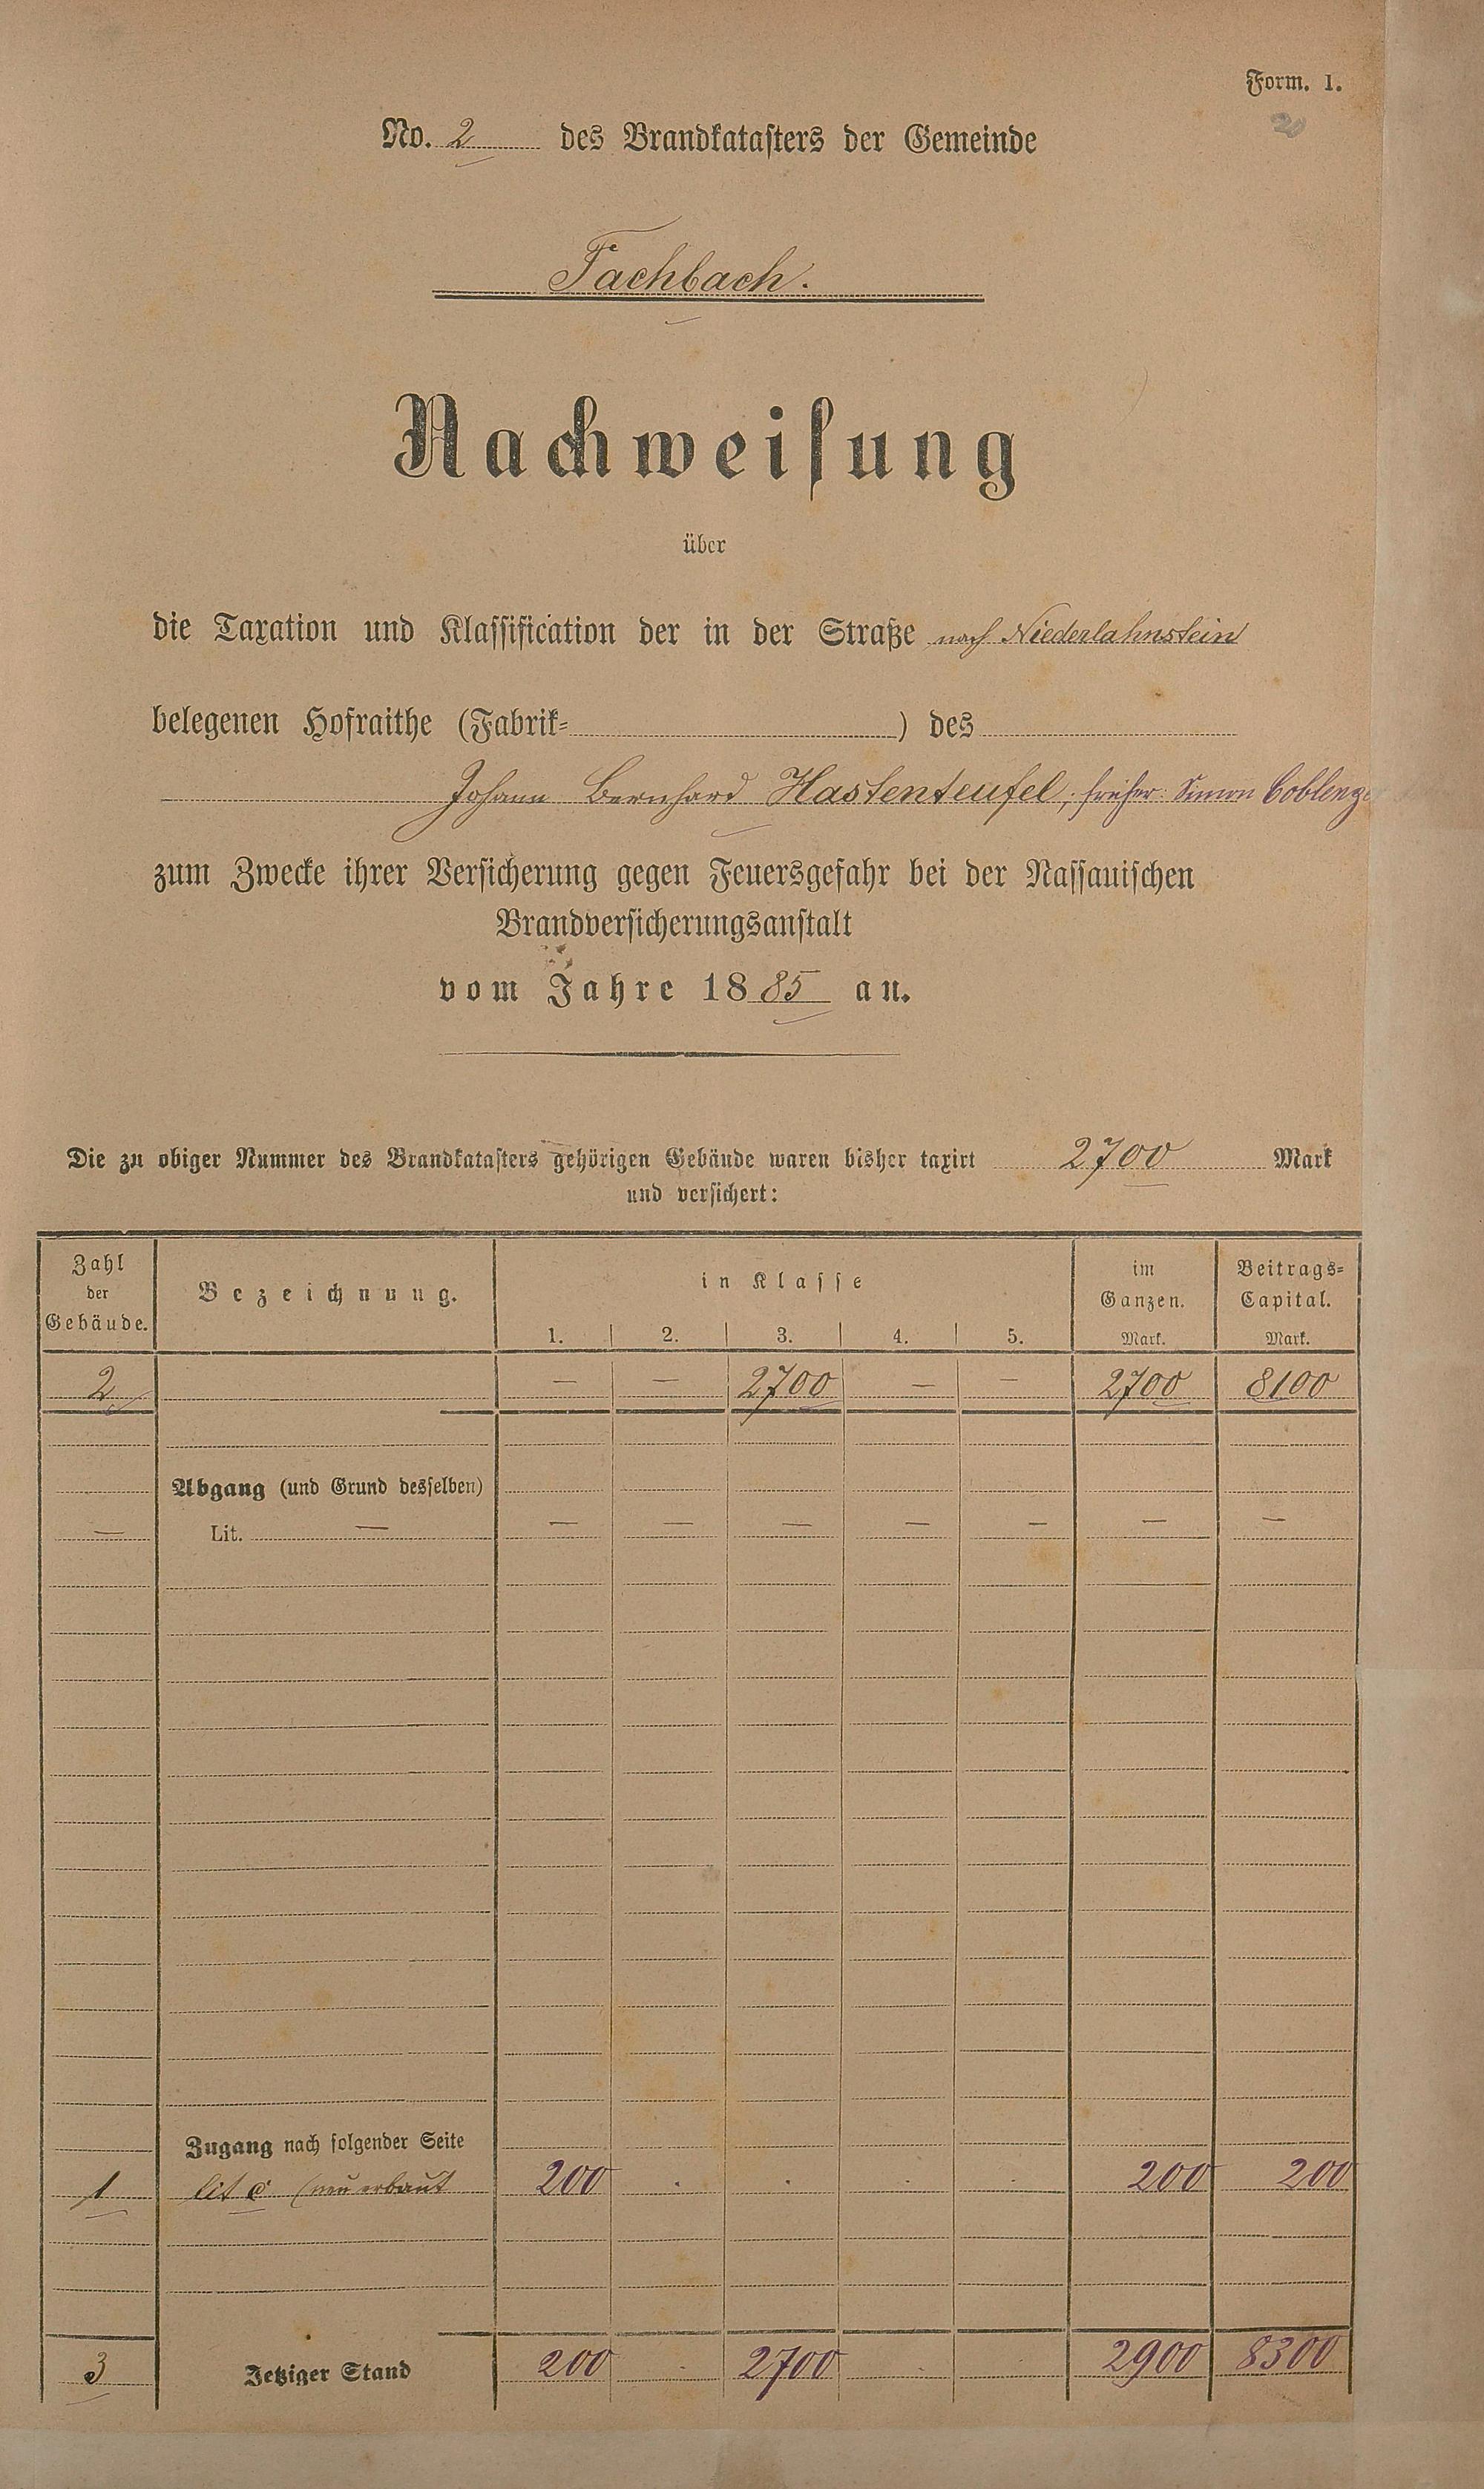 Form. 1.
20
No. 2 des Brandkatasters der Gemeinde
Fachbach.
Nachweisung
über
die Taxation und Klassification der in der Straße nach Niederlahnstein
belegenen Hofraithe (Fabrik- ) des
Johann Bernhard Hastenteufel, früher Simon Coblenze
zum Zwecke ihrer Versicherung gegen Feuersgefahr bei der Nassauischen
Brandversicherungsanstalt
vom Jahre 1885 an.
Die zu obiger Nummer des Brandkatasters gehörigen Gebäude waren bisher taxirt 2700 Mark
und versichert:
Zahl der Gebäude. Bezeichnung. in Klasse im Ganzen. Beitrags-Capital.
1. 2. 3. 4. 5. Mark. Mark.
2 — — 2700 — — 2700 8100
Abgang (und Grund desselben)
— Lit. — — — — — — — —
Zugang nach folgender Seite
1 lit c (neu erbaut 200 . . . . 200 200
3 Jetziger Stand 200 . 2700 . . 2900 8300